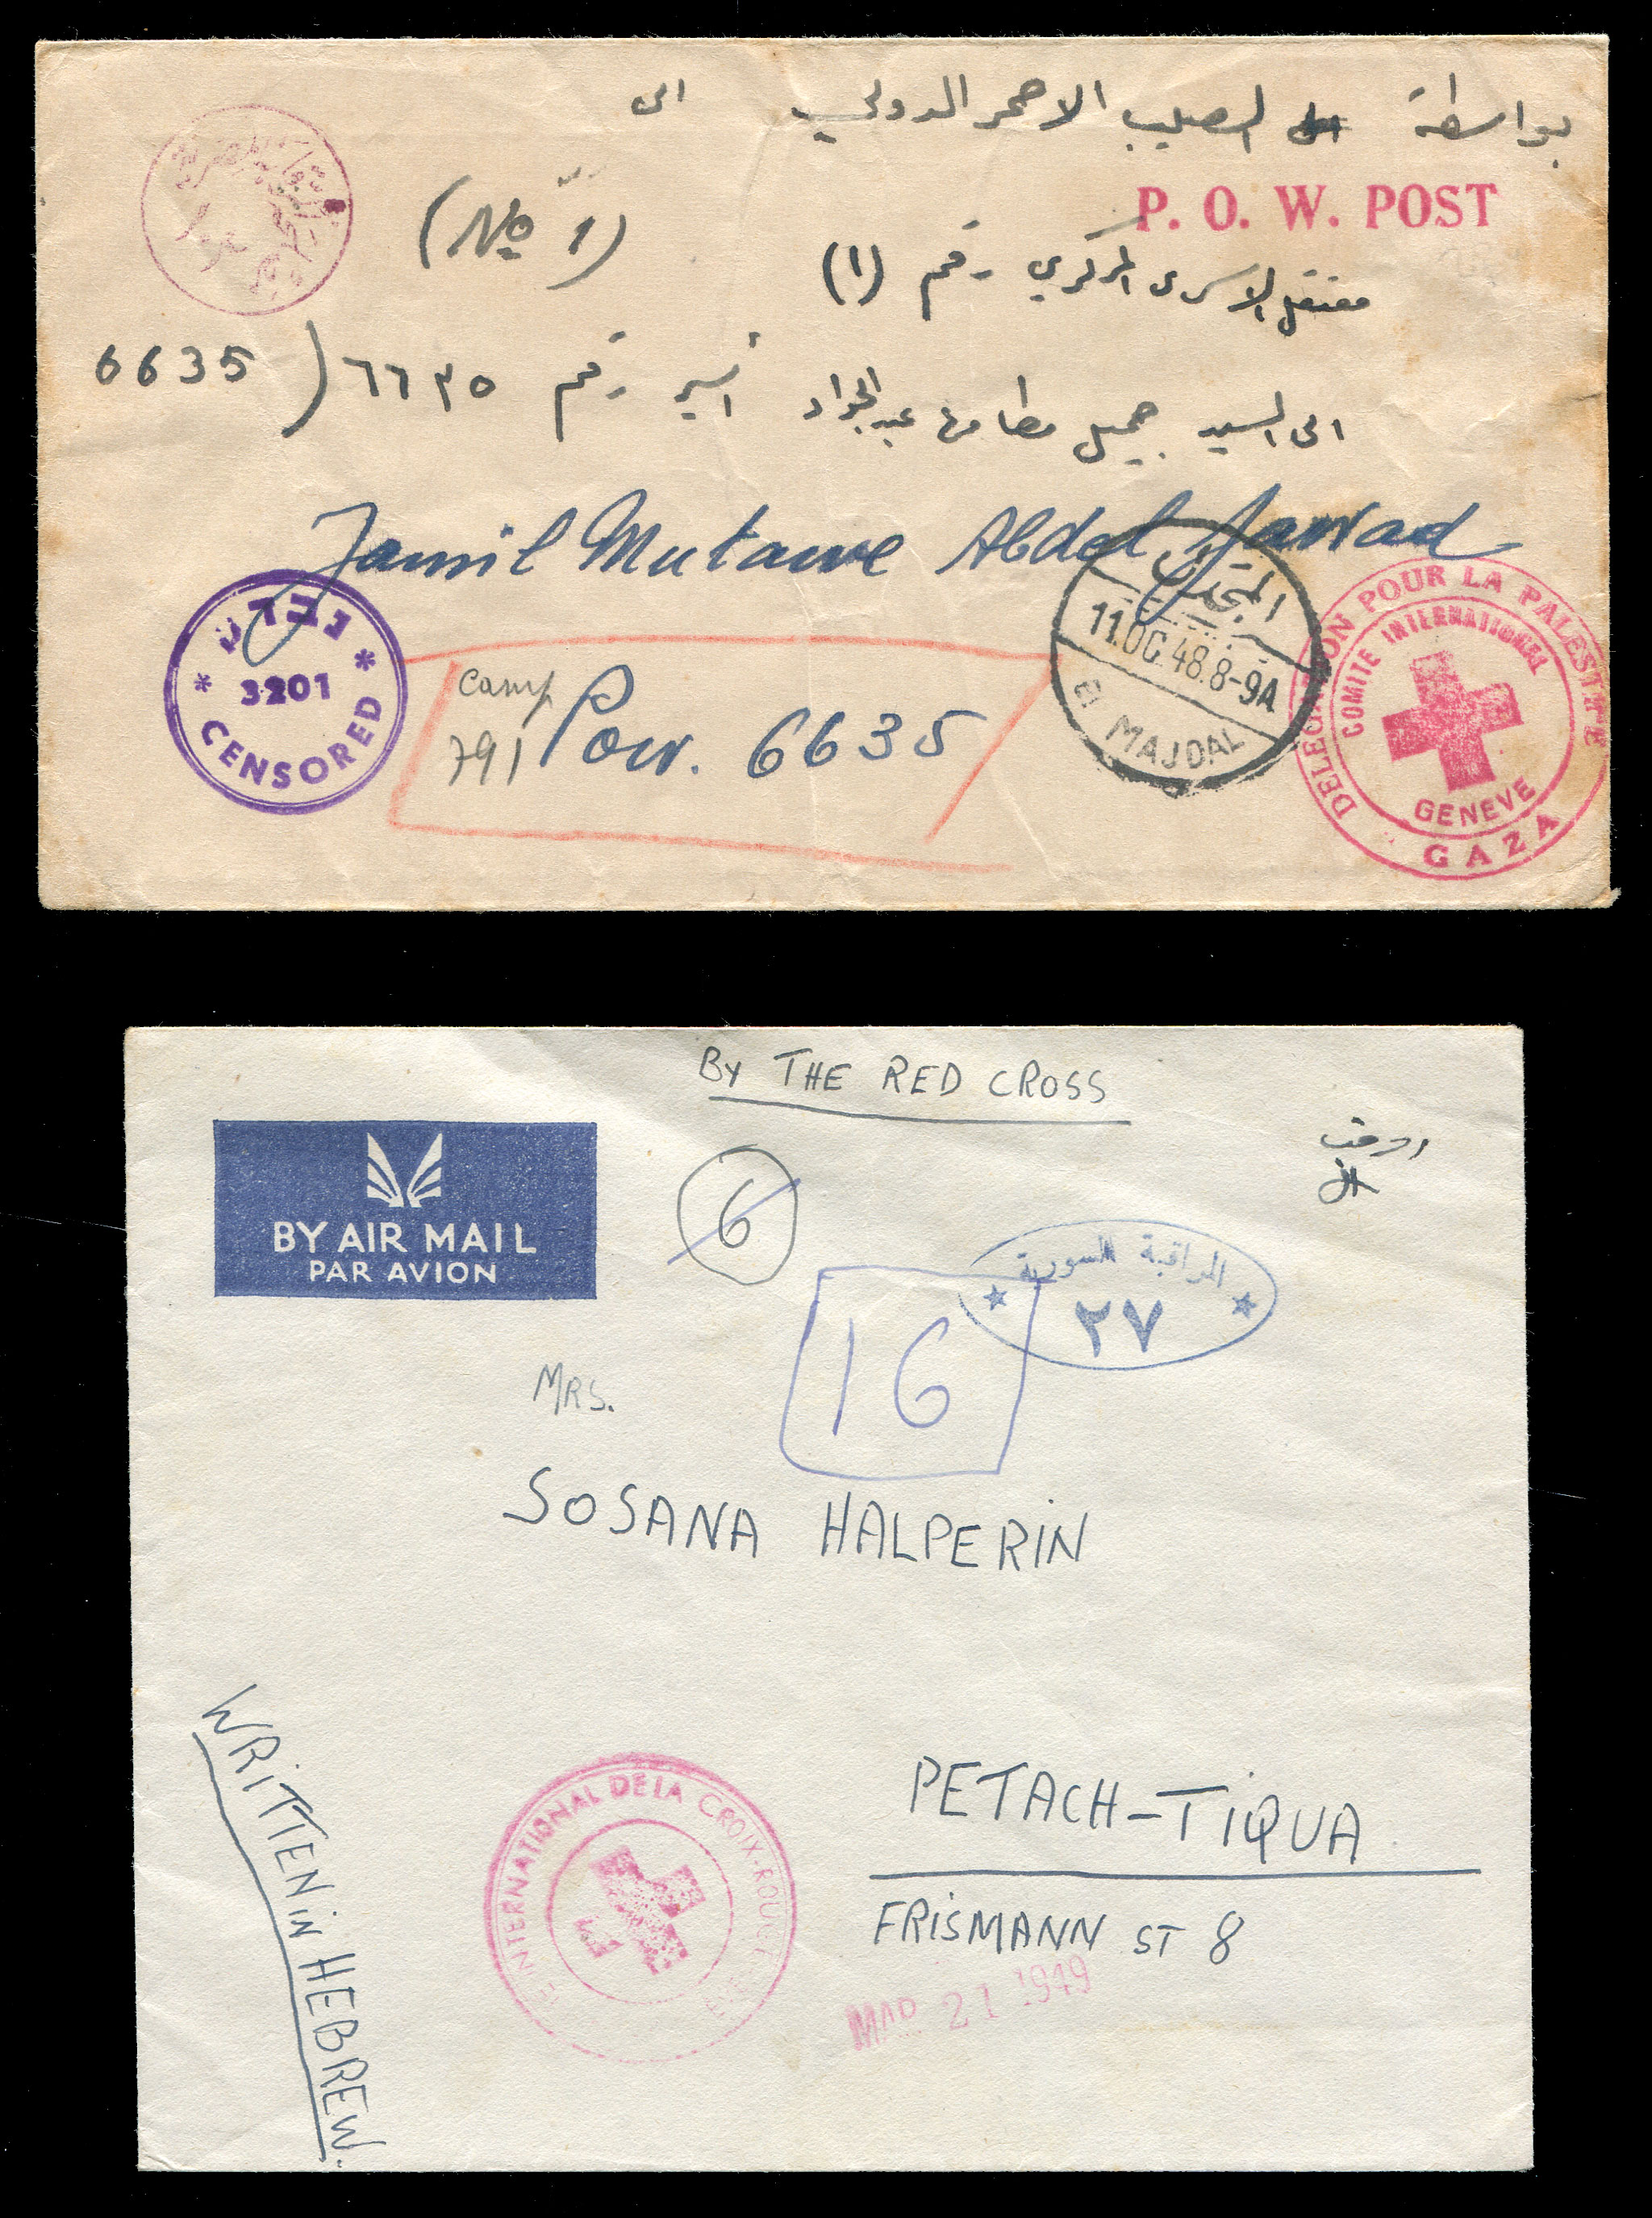 بواسطة الصليب الاحمر الدولي الى
P. O. W. POST
(No 1)
معتقل الاسرى المركزي رقم (١)
الى السيد جميل مطاوع عبد الجواد أسير رقم ٦٦٣٥ ( 6635
Jamil Mutawe Abdel Jawad
נבדק
3201
CENSORED
camp
791
Pow. 6635
المجدل
11.OC.48.8-9A
El MAJDAL
DELEGATION POUR LA PALESTINE
COMITE INTERNATIONAL
GENEVE
GAZA
BY THE RED CROSS
BY AIR MAIL
PAR AVION
6
المراقبة السورية
٢٧
16
MRS.
SOSANA HALPERIN
PETACH-TIQUA
FRISMANN ST 8
WRITTEN IN HEBREW.
INTERNATIONAL DE LA CROIX-ROUGE
MAR 21 1949